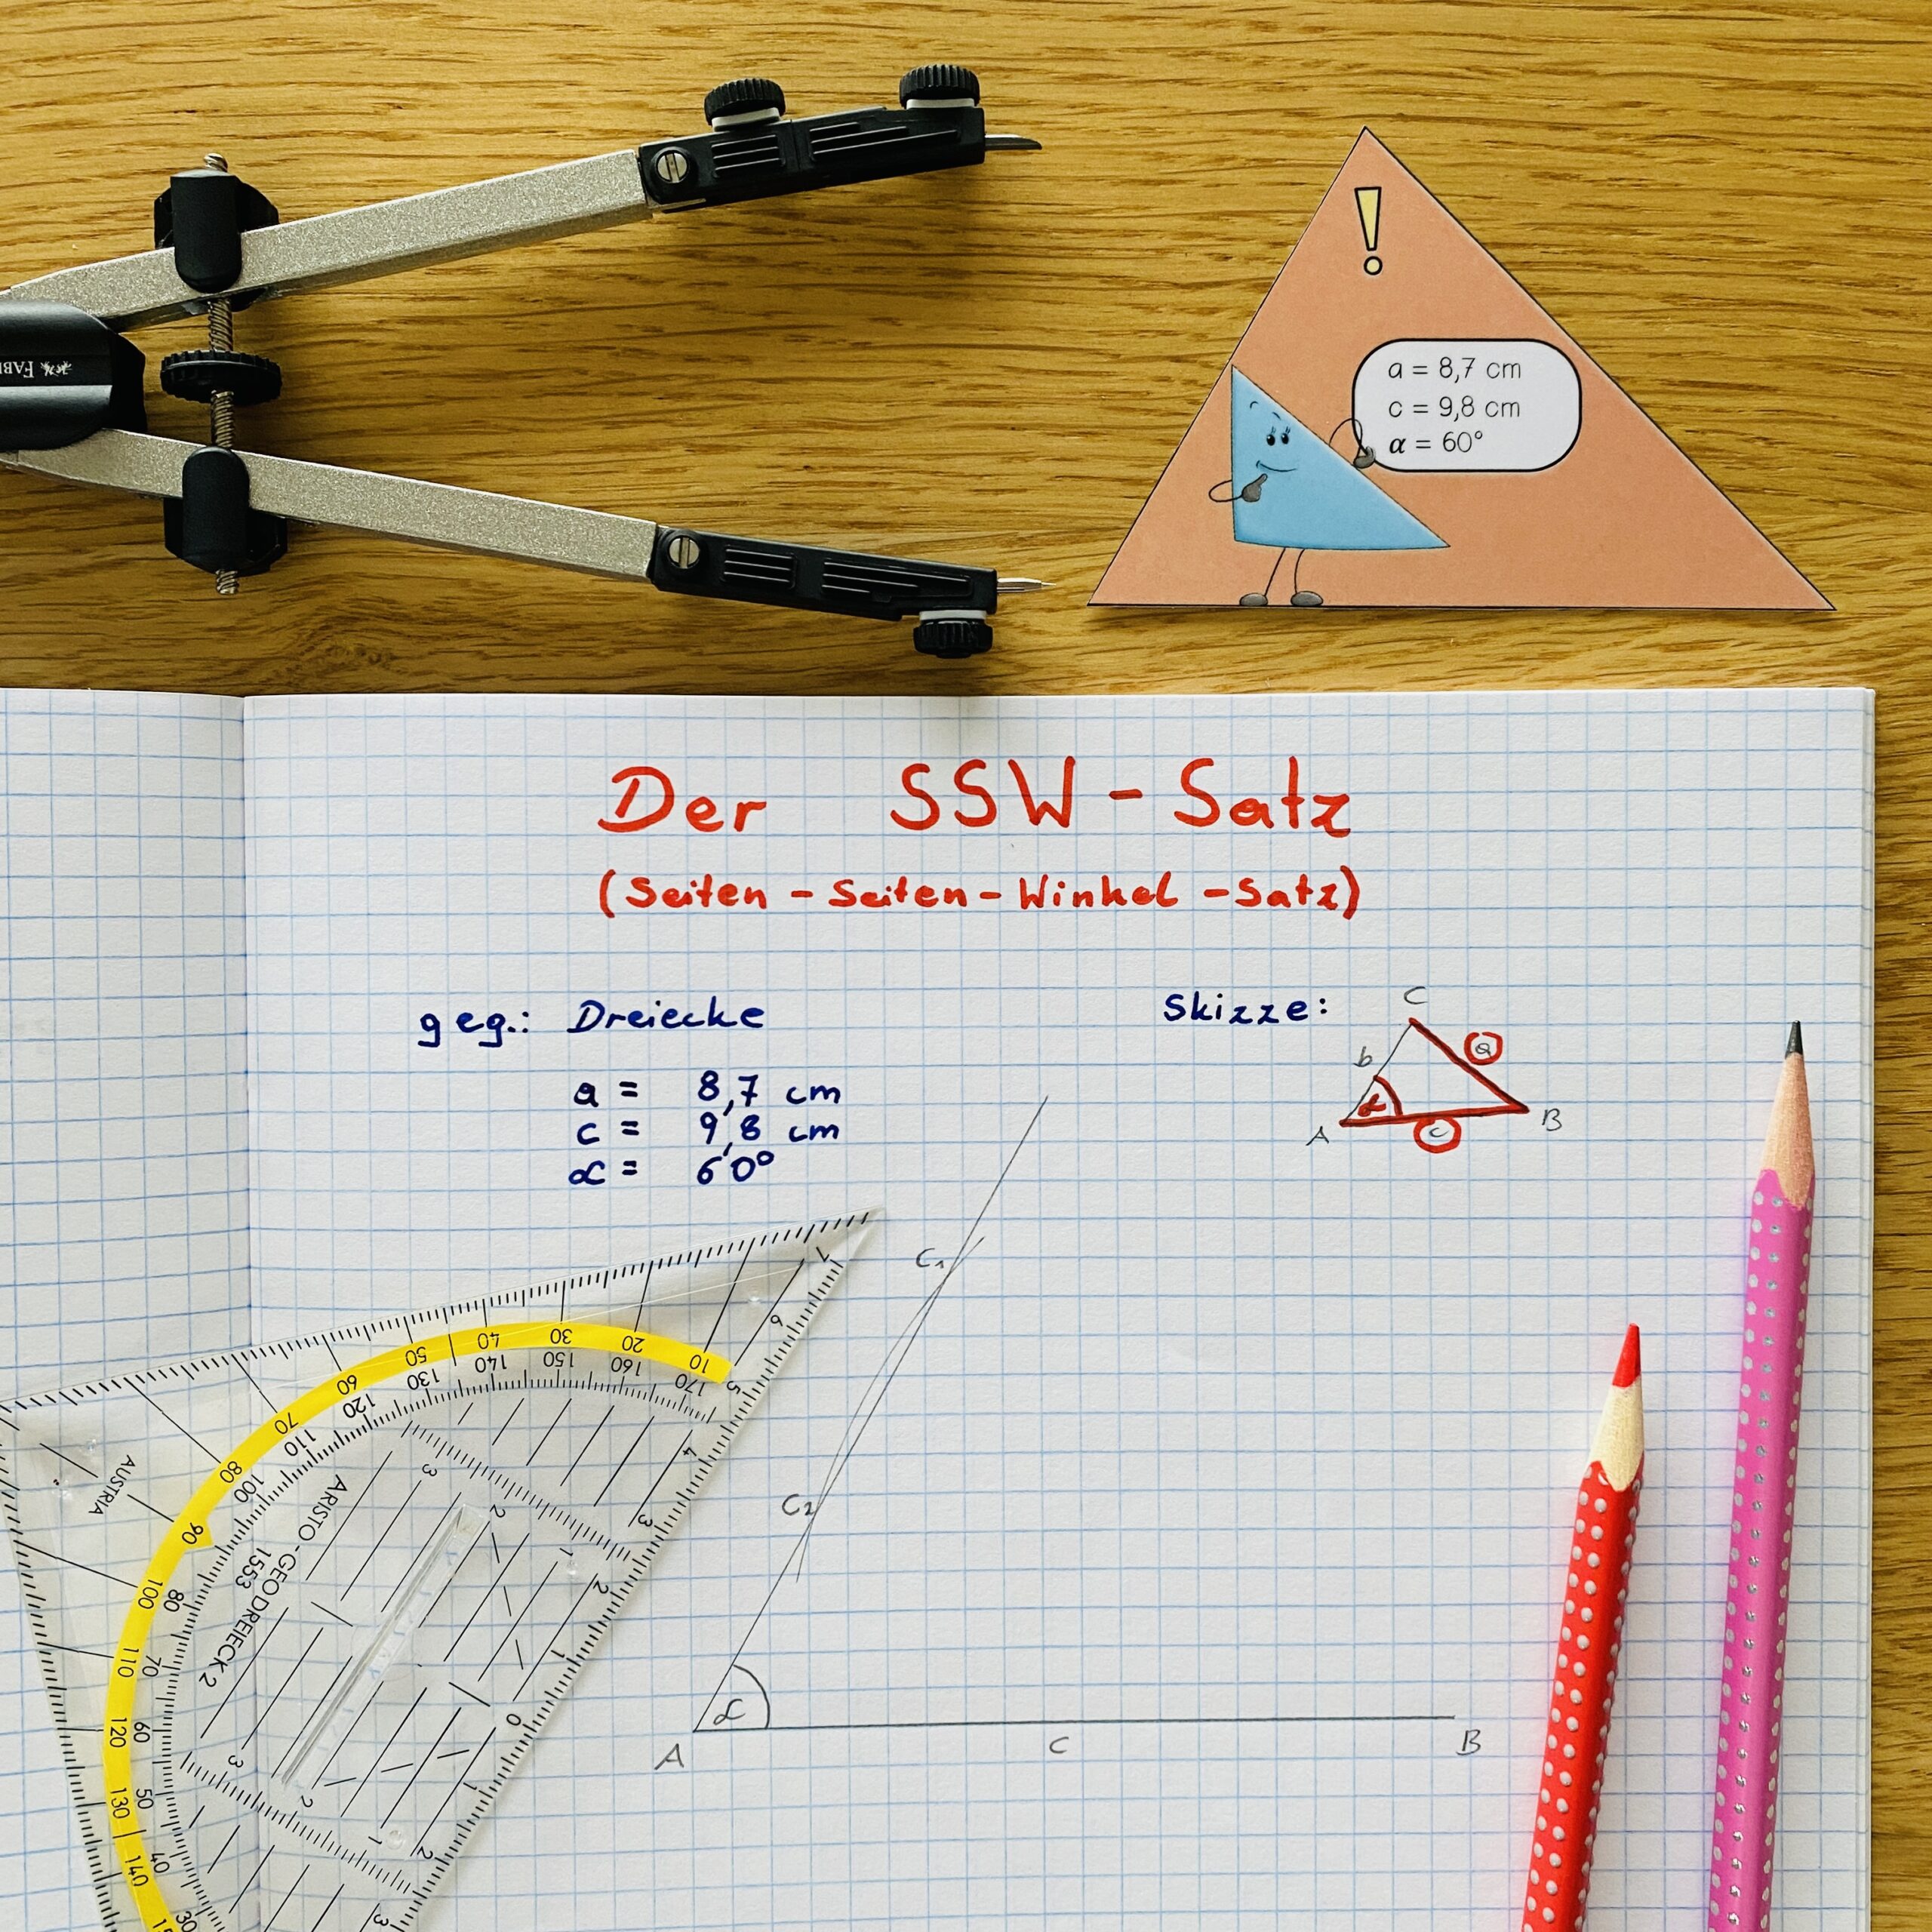 !
a = 8,7 cm
c = 9,8 cm
α = 60°
Der SSW-Satz
(Seiten-Seiten-Winkel-Satz)
geg.: Dreiecke
a = 8,7 cm
c = 9,8 cm
α = 60°
Skizze:
C
b
a
α
A
c
B
C₁
C₂
α
A
c
B
7
6
5
4
3
2
1
0
1
2
3
10 20 30 40 50 60 70 80 90 100 110 120 130 140
170 160 150 140 130 120 110 100 80 70 60 50 40 30
3 2 1
3 2 1
AUSTRIA
ARISTO - GEODREIECK 2
1553